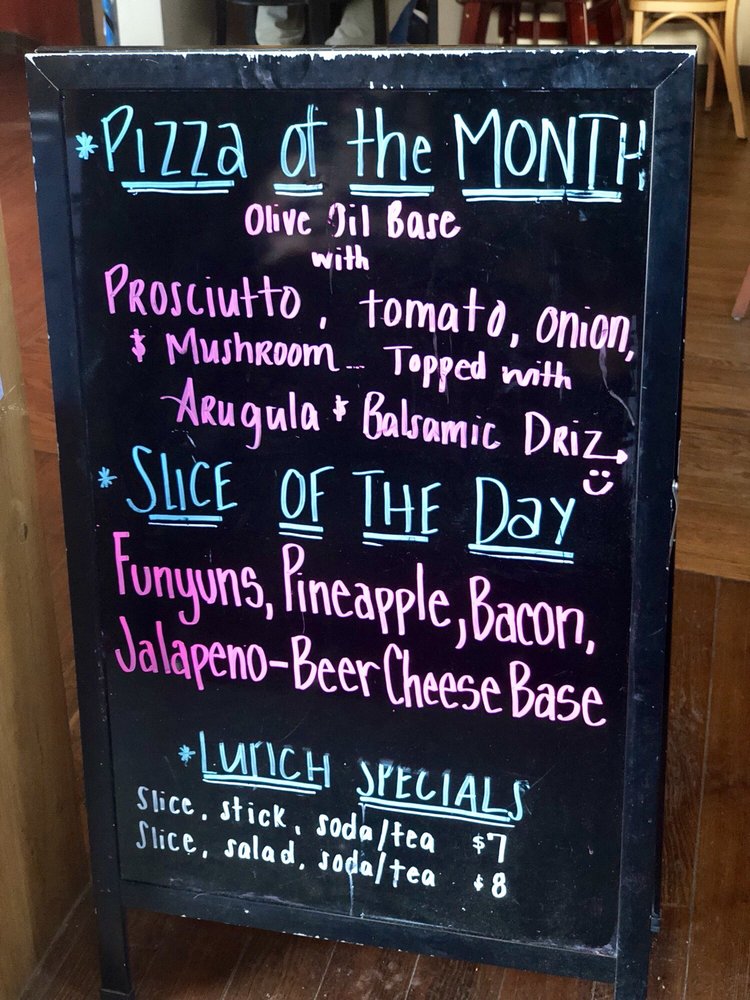 *Pizza of the MONTH
Olive Oil Base
with
Prosciutto, tomato, onion,
& Mushroom... Topped with
Arugula & Balsamic Driz
*Slice of the Day
Funyuns, Pineapple, Bacon,
Jalapeno-Beer Cheese Base
*Lunch Specials
Slice, stick, soda/tea $7
Slice, salad, soda/tea $8